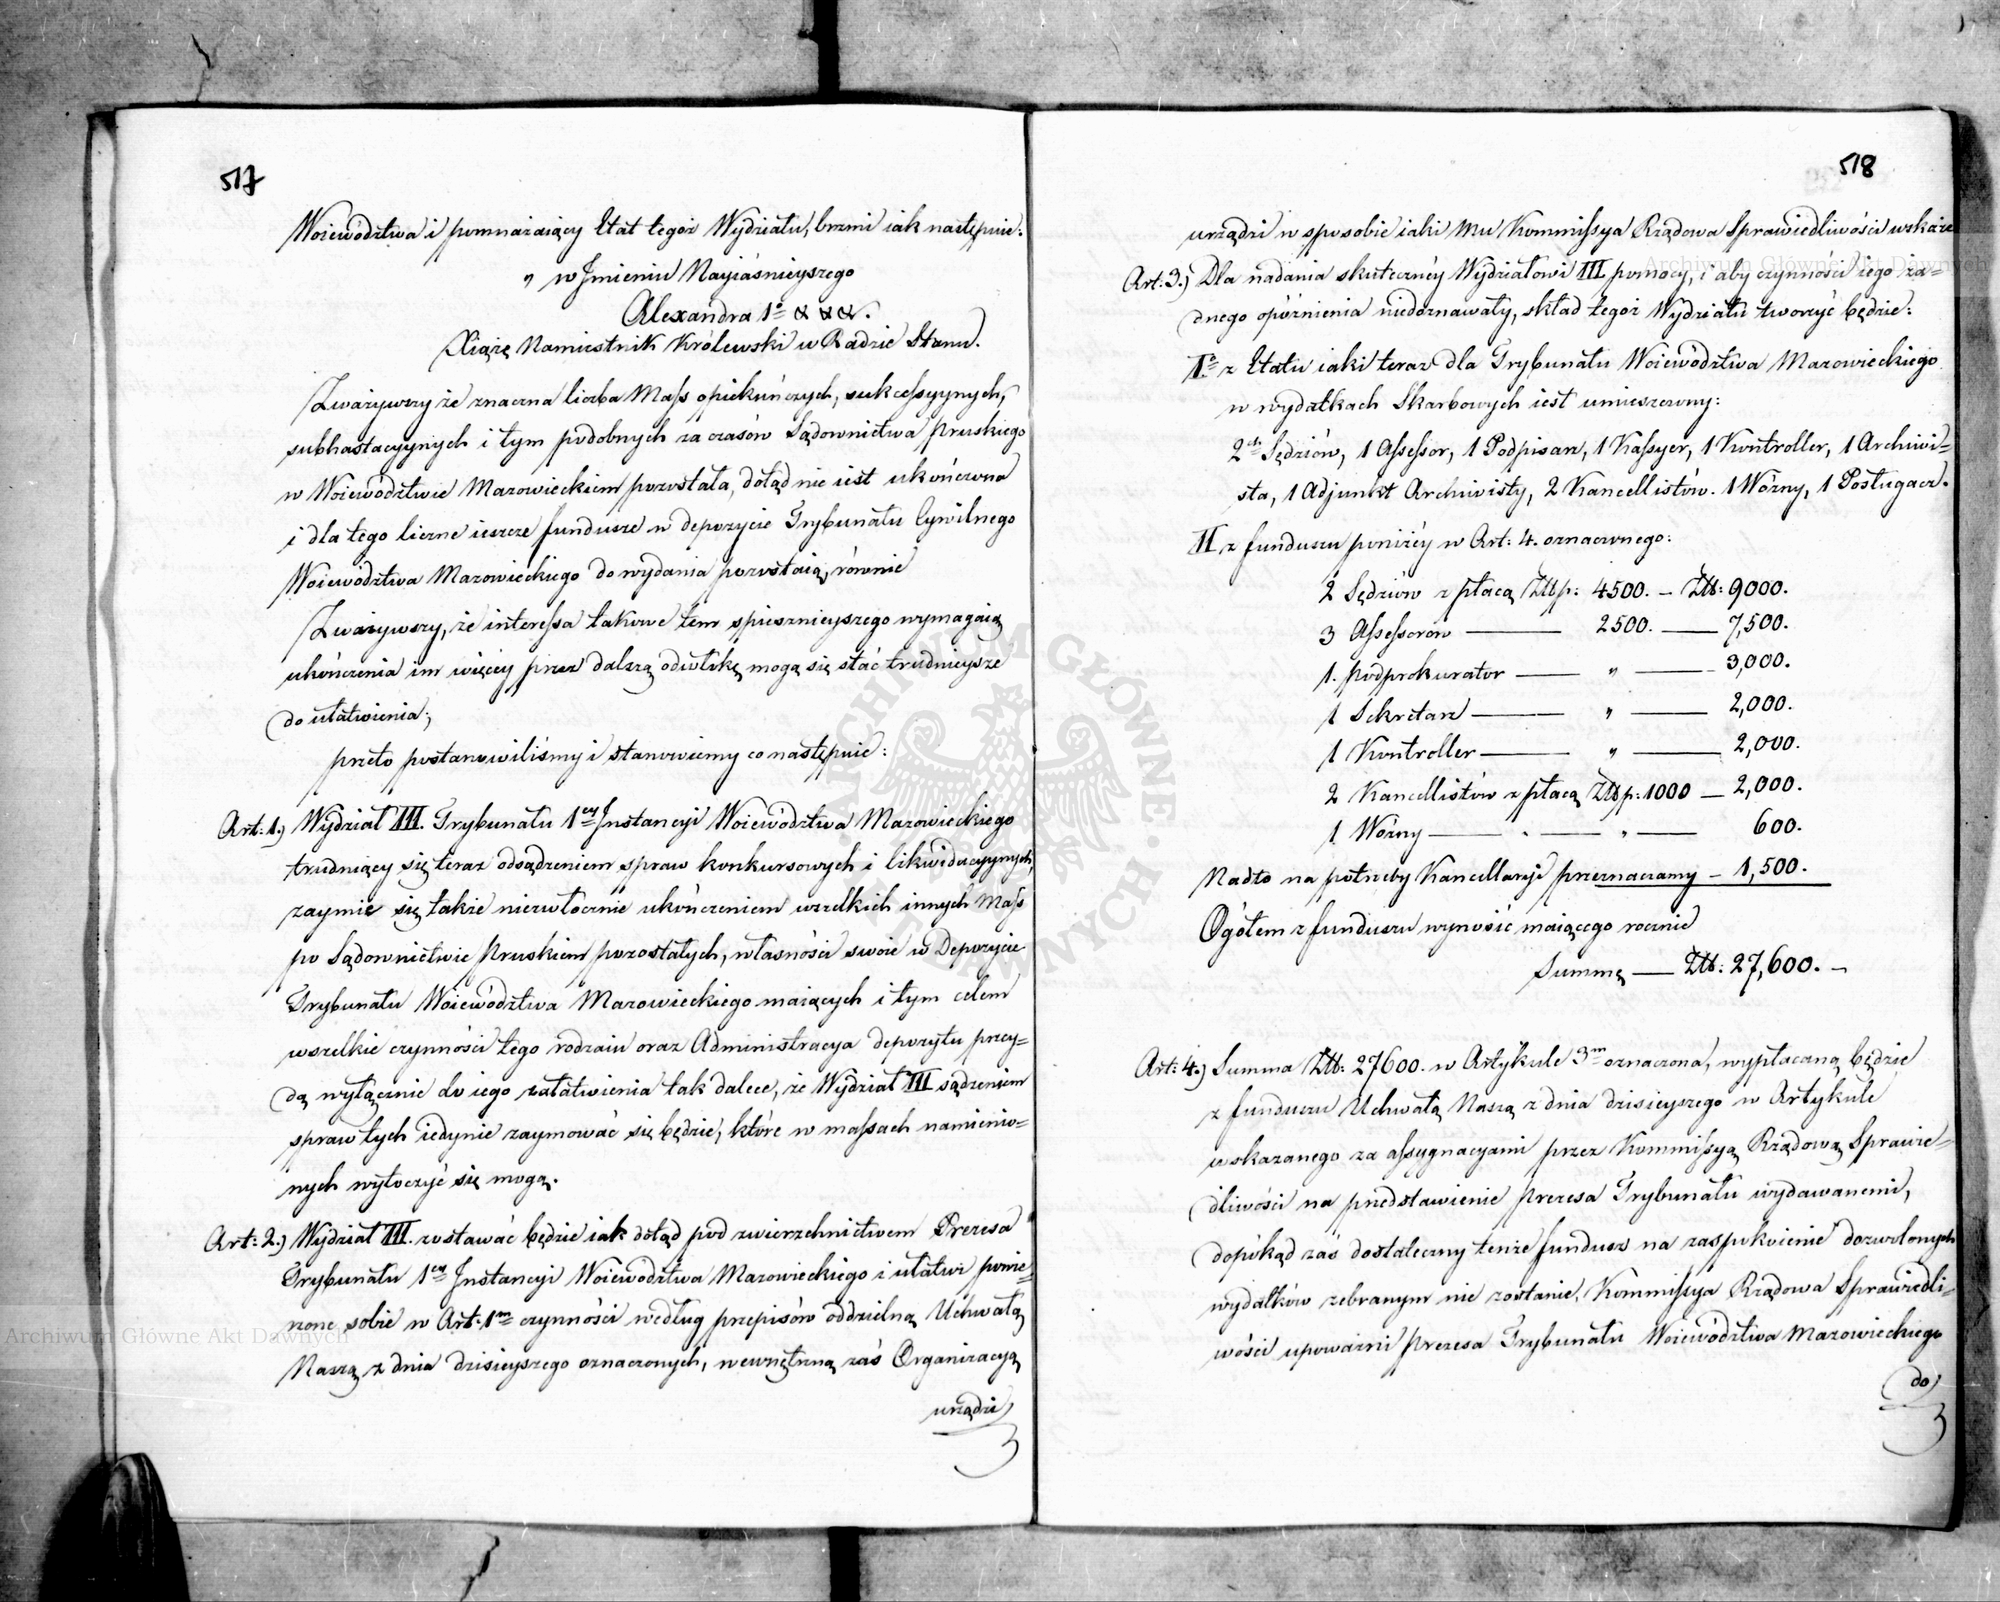 517
Woiewództwa i pomnażaiący Etat tegoż Wydziału, brzmi iak następuie:
„ w Jmieniu Nayiaśnieyszego
Alexandra 1º &c &c &c.
Xiążę Namiestnik Królewski w Radzie Stanu.
Zważywszy że znaczna liczba Mass opiekuńczych, sukcessyynych,
subhastacyynych i tym podobnych za czasów Sądownictwa Pruskiego
w Woiewództwie Mazowieckiem pozostała, dotąd nie iest ukończona
i dla tego liczne ieszcze fundusze w depozycie Trybunału Cywilnego
Woiewództwa Mazowieckiego do wydania pozostaią, równie
Zważywszy, że interessa takowe tem spiesznieyszego wymagaią
ukończenia im więcéy przez dalszą odwłokę mogą się stać trudnieysze
do ułatwienia;
przeto postanowiliśmy i stanowiemy co następuie:
Art: 1.) Wydział III. Trybunału 1éy Jnstancyi Woiewództwa Mazowieckiego
trudniący się teraz odsądzeniem spraw konkursowych i likwidacyynych,
zaymie się także niezwłocznie ukończeniem wszelkich innych Mass
po Sądownictwie Pruskiem pozostałych, własności swoie w Depozycie
Trybunału Woiewództwa Mazowieckiego maiących i tym celem
wszelkie czynności tego rodzaiu oraz Administracya depozytu przey=
dą wyłącznie do iego załatwienia tak dalece, że Wydział III sądzeniem
spraw tych iedynie zaymować się będzie, które w massach namienio=
nych wytoczyć się mogą.
Art: 2.) Wydział III. zostawać będzie iak dotąd pod zwierzchnictwem Prezesa
Trybunału 1éy Jnstancyi Woiewództwa Mazowieckiego i ułatwi powie=
rzone sobie w Art: 1m czynności według przepisów oddzielną Uchwałą
Naszą z dnia dzisieyszego oznaczonych, wewnętrzną zaś Organizacyą
urządzi
518
urządzi w sposobie iaki mu Kommissya Rządowa Sprawiedliwości wskaże
Art: 3.) Dla nadania skutecznéy Wydziałowi III pomocy, i aby czynności iego ża=
dnego opóźnienia niedoznawały, skład tegoż Wydziału tworzyć będzie:
Iº z Etatu iaki teraz dla Trybunału Woiewództwa Mazowieckiego
w wydatkach Skarbowych iest umieszczony:
2ch Sędziów, 1 Assessor, 1 Podpisarz, 1 Kassyer, 1 Kontroller, 1 Archiwi=
sta, 1 Adjunkt Archiwisty, 2 Kancellistów. 1 Woźny, 1 Posługacz.
II z funduszu poniżéy w Art: 4. oznaczonego:
2 Sędziów z płacą Złtp: 4500. – Złt: 9000.
3 Assessorów —— 2500. —— 7,500.
1. podprokurator —— „ —— 3,000.
1 Sekretarz —— „ —— 2,000.
1 Kontroller —— „ —— 2,000.
2 Kancellistów z płacą Złtp: 1000 — 2,000.
1 Woźny —— „ —— „ —— 600.
Nadto na potrzeby Kancellaryi przeznaczamy – 1,500.
Ogółem z funduszu wynosić maiącego rocznie
Summę —— Złt: 27,600. –
Art: 4.) Summa Złt: 27600. w Artykule 3m oznaczona, wypłacaną będzie
z funduszu Uchwałą Naszą z dnia dzisieyszego w Artykule
wskazanego za assygnacyami przez Kommissyą Rządową Sprawie=
dliwości na przedstawienie prezesa Trybunału wydawanemi,
dopókąd zaś dostateczny tenże fundusz na zaspokoienie dozwolonych
wydatków zebranym nie zostanie, Kommissya Rządowa Sprawiedli=
wości upoważni prezesa Trybunału Woiewództwa Mazowieckiego
do
Archiwum Główne Akt Dawnych
Archiwum Główne Akt Dawnych
ARCHIWUM GŁÓWNE AKT DAWNYCH